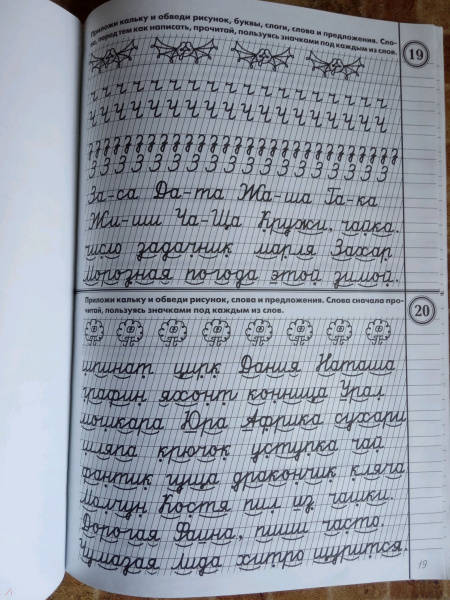 Приложи кальку и обведи рисунок, буквы, слоги, слова и предложения. Сло-
во, перед тем как написать, прочитай, пользуясь значками под каждым из слов.
19
ч ч ч ч ч ч ч ч ч ч ч ч ч ч ч ч ч
Ч Ч Ч Ч Ч Ч Ч Ч Ч Ч Ч Ч Ч Ч Ч Ч Ч
з з з з з з з з з з з з з з з з з з з з з з з з
З З З З З З З З З З З З З З З З
За-са Да-та Жа-ша Га-ка
Жи-ши Ча-Ща Кружи, чайка.
число задачник марля Захар
Морозная погода этой зимой.
Приложи кальку и обведи рисунок, слова и предложения. Слова сначала про-
читай, пользуясь значками под каждым из слов.
20
шпинат цирк Дания Наташа
графин яхонт конница Урал
мошкара Юра Африка сухари
шляпа крючок уступка чай
фантик гуща дракончик кляча
Молчун Костя пил из чашки.
Дорогая Фаина, пиши часто.
Чумазая Лида хитро щурится.
19